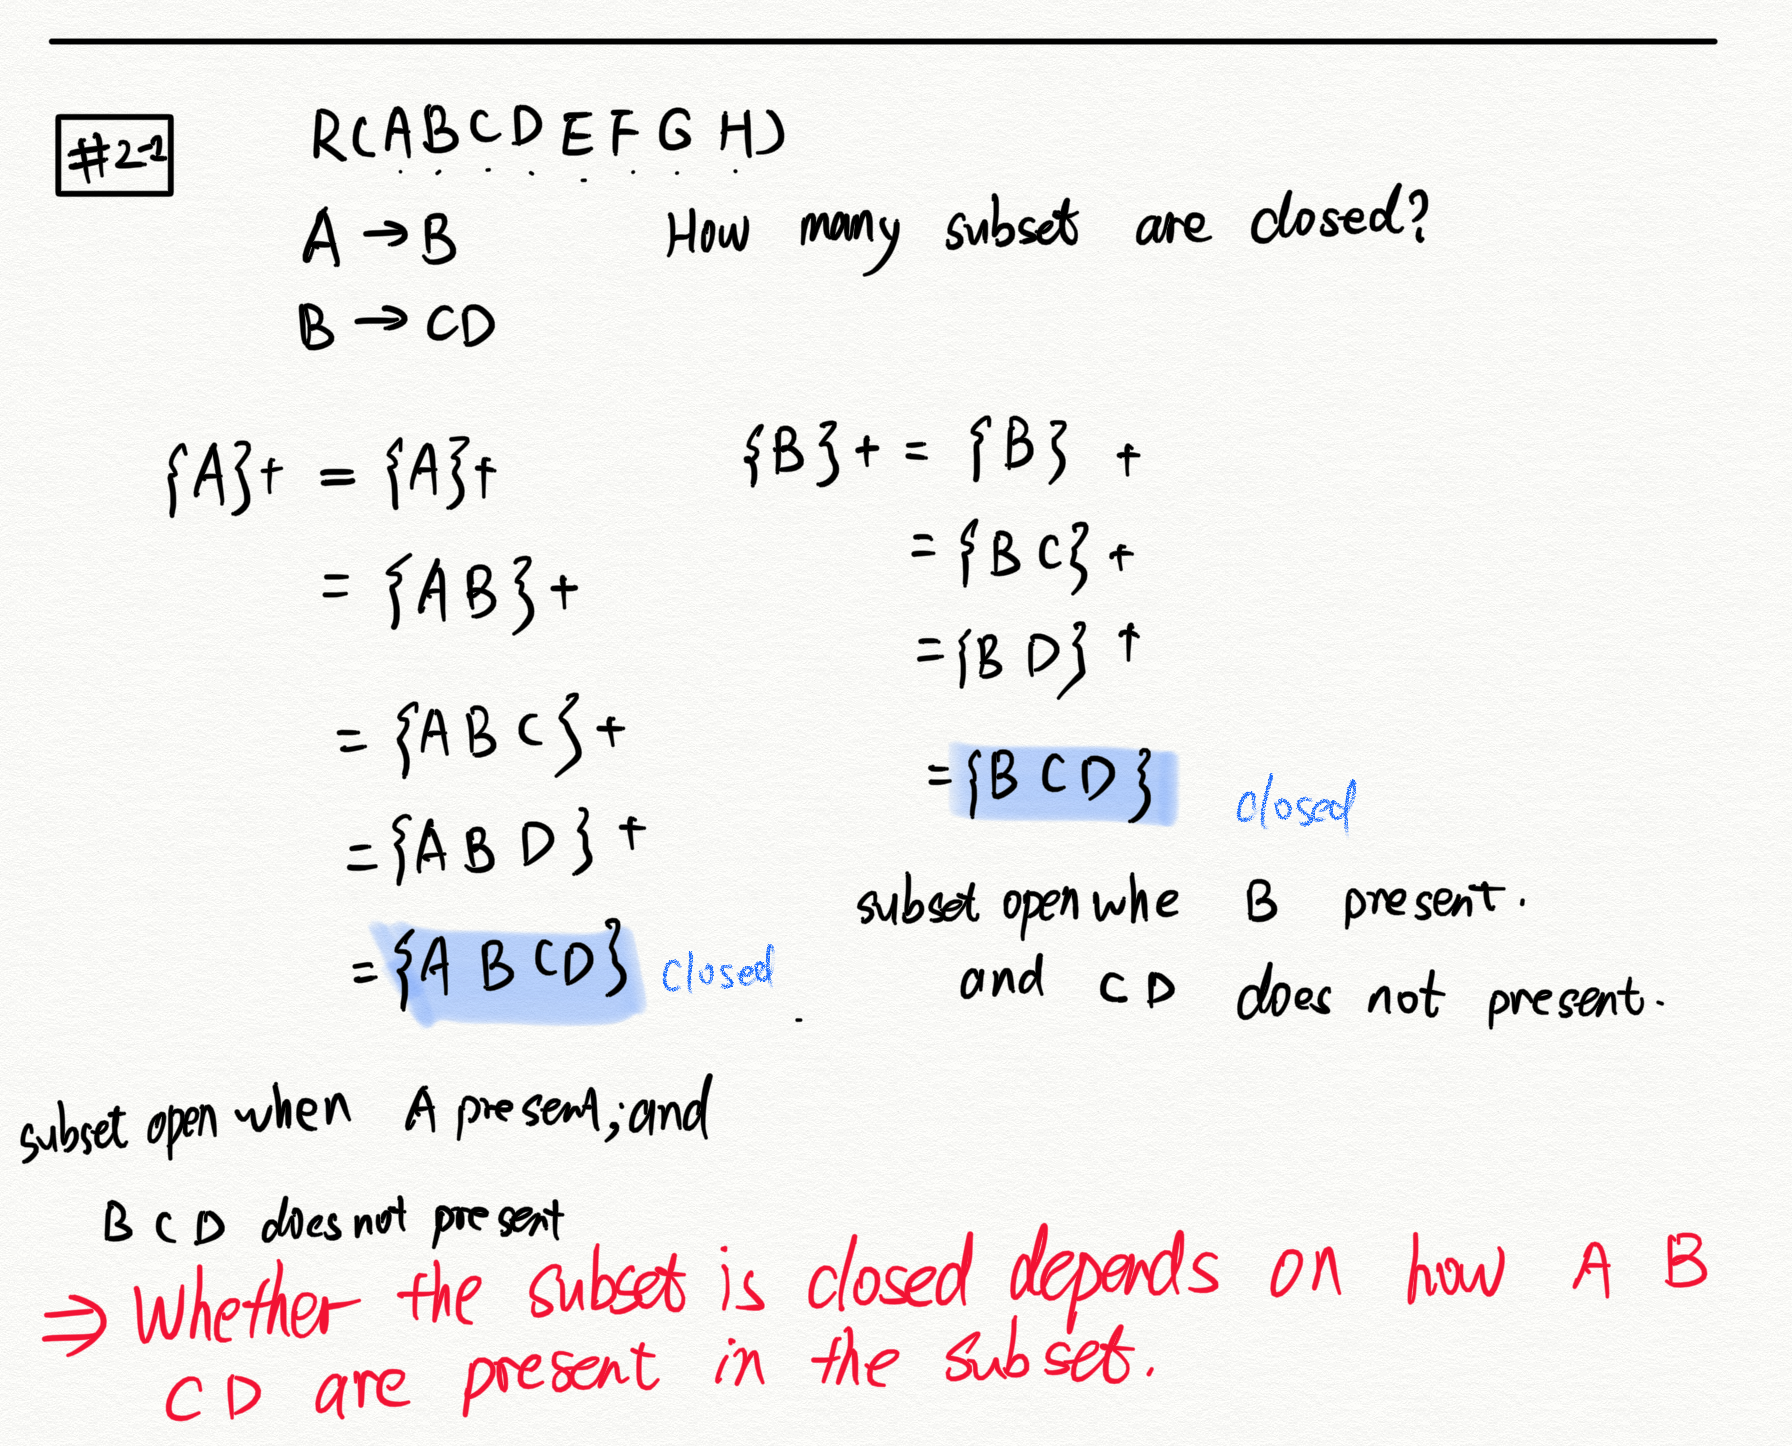 #2-2
R(ABCDEFGH)
A → B
How many subset are closed?
B → CD
{A}+ = {A}+
= {AB}+
= {ABC}+
= {ABD}+
= {ABCD} closed
subset open when A present, and
BCD does not present
{B}+ = {B}+
= {BC}+
= {BD}+
= {BCD} closed
subset open whe B present.
and CD does not present.
⇒ Whether the subset is closed depends on how A B
CD are present in the subset.